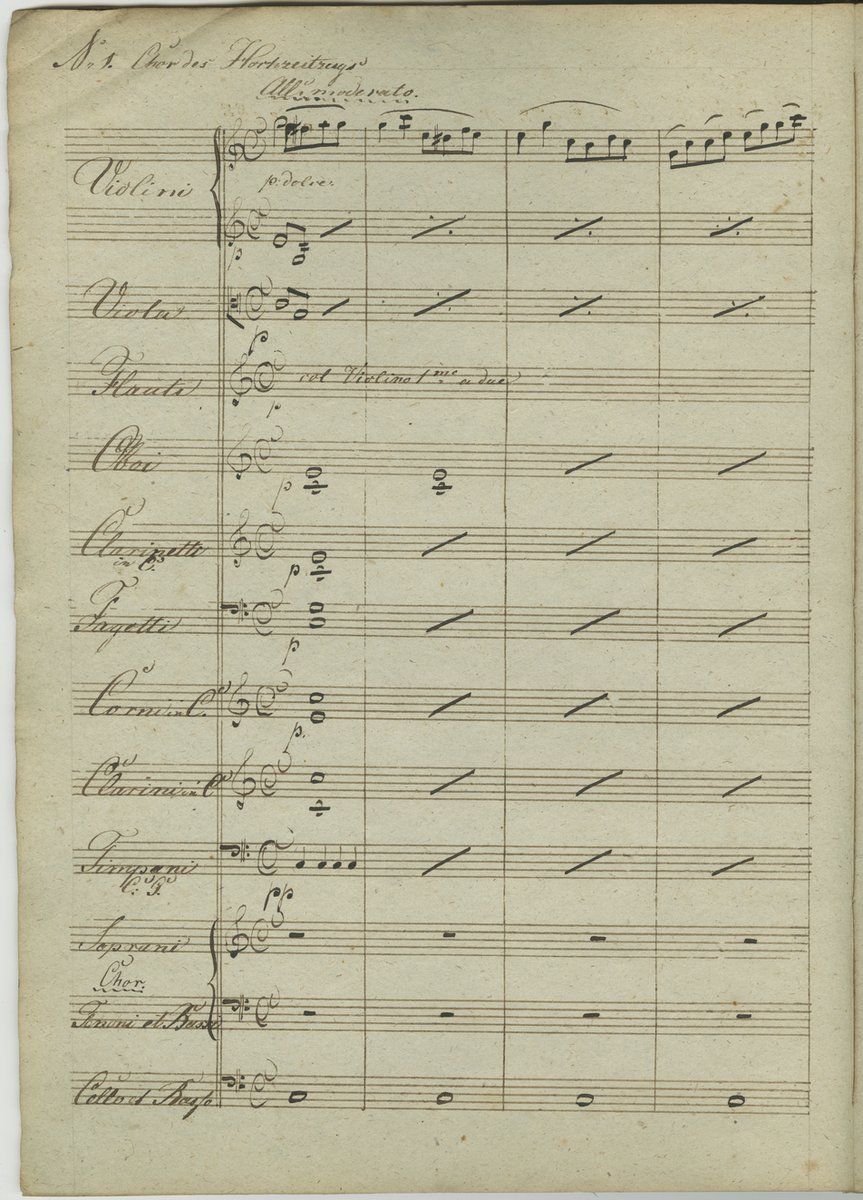 No 1. Chor des Hochzeitzugs
Allo moderato.
Violini
p: dolce:
p
Viola
p
Flauti
col Violino 1mo a due
p
Oboi
p
Clarinetti
in C.
p
Fagotti
p
Corni in C.
p.
Clarini in C
Timpani
C: G.
pp
Soprani
Chor.
Tenori et Bassi
Cello et Basso